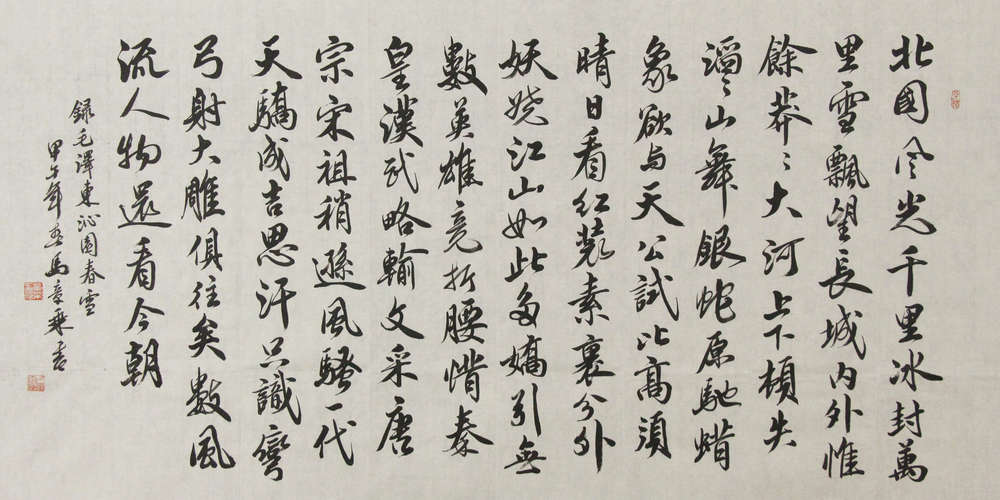 北國風光千里冰封萬
里雪飄望長城內外惟
餘莽〻大河上下頓失
滔〻山舞銀蛇原馳蜡
象欲与天公試比高須
晴日看紅裝素裹分外
妖嬈江山如此多嬌引無
數英雄競折腰惜秦
皇漢武略輸文采唐
宗宋祖稍遜風騷一代
天驕成吉思汗只識彎
弓射大雕俱往矣數風
流人物還看今朝
錄毛澤東沁園春雪
甲午年馬章乘書